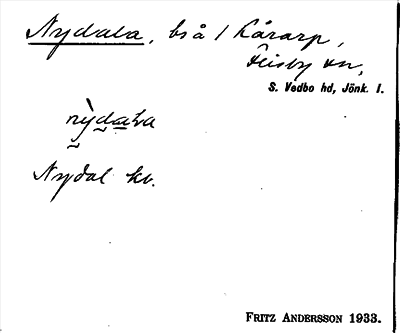 Nydala, bs å / Kårarp,
Flisby sn,
S. Vedbo hd, Jönk. l.
nỳdaLa
Nydal kv.
FRITZ ANDERSSON 1933.